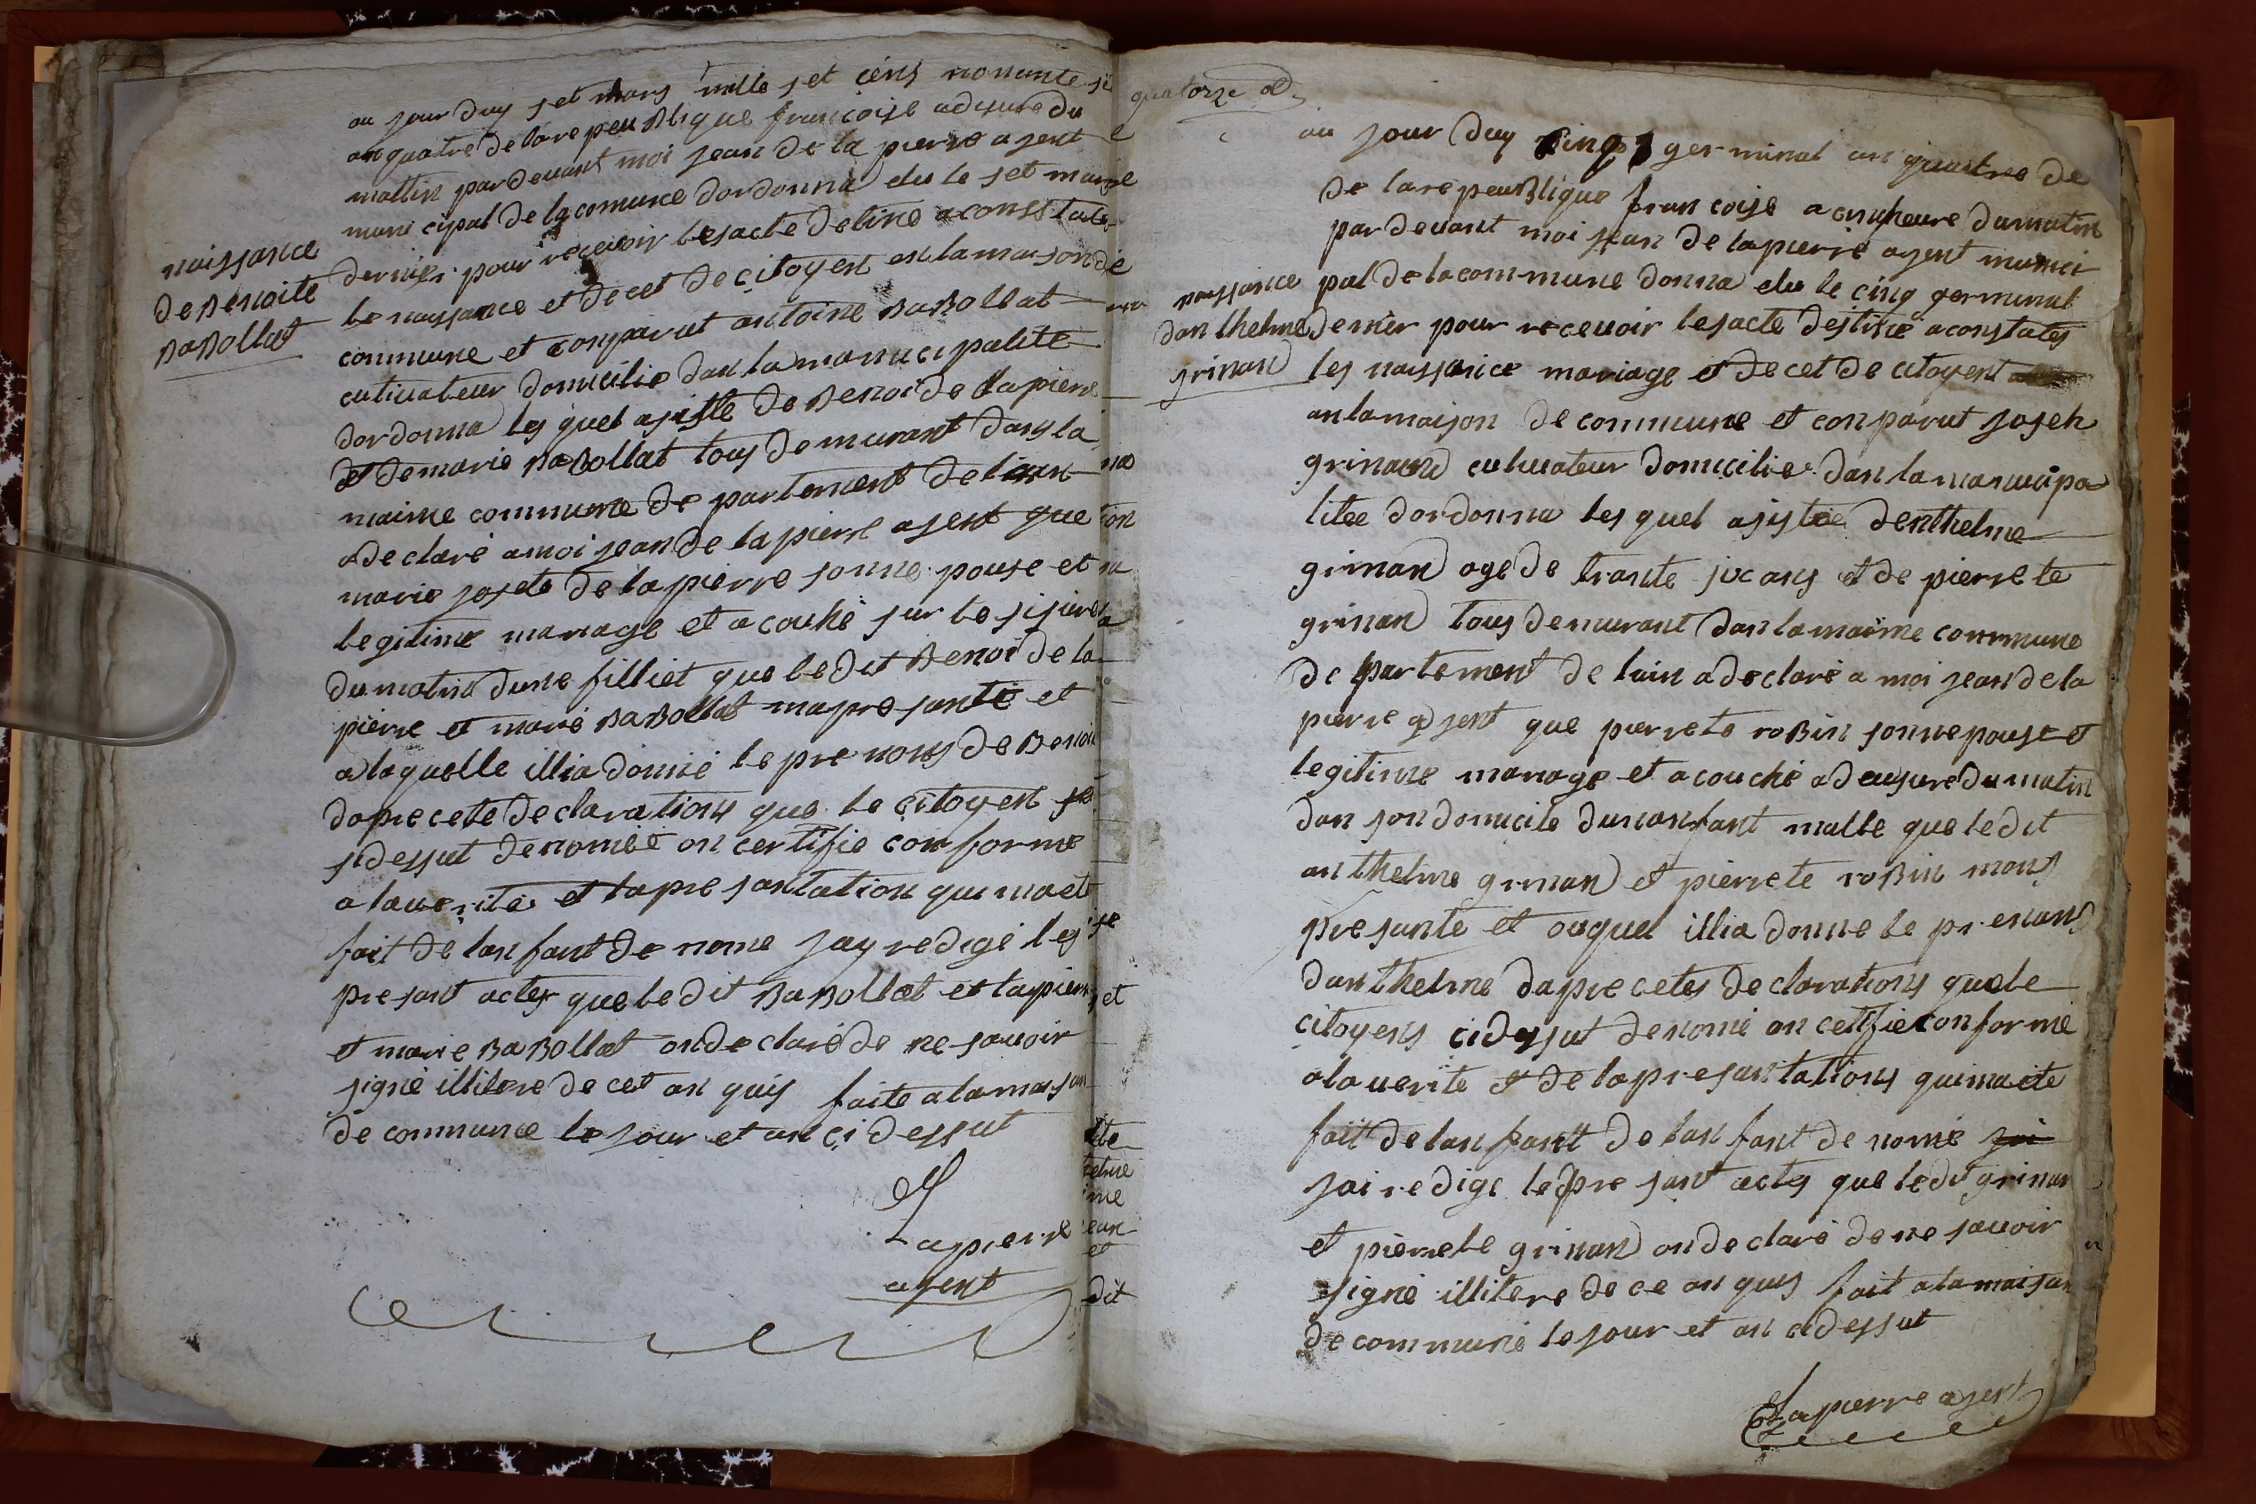 au jour duy set mars mille set cens nonante si
an quatre de lare peu Blique francoise a dis eure du
mattin par devant moi jean de la pierre agent
muni cipal de la comune dordonna elu le set mars
dernier pour recevoir les acte detine a constater
le naissance et de cet de citoyent en la maison de
commune et conparut antoine BaBollat
cutivateur domicilie dan la manucipalite
dordonna les quel asiste de Benoi de lapierre
et de marie BaBollat tous demurant dans la
maime commune de partement de lain
a declaré a moi jean de la pierre agent que
marie josete de la pierre sonne pouse et
legitime mariage et a couhé sur le sis ure
du matin dune filliet que le dit Benoi de la
pierre et marie BaBollat ma pre santé et
a laquelle illia donné le pre nons de Benoi
dapre cete declarations que le citoyent
sidessut denomée on certifie conforme
a laverite et la pre santation qui ma et
fait de lan fant de nome jay redigé les
pre sant actes que le dit BaBollat et lapierre
et marie BaBollat on declaré de ne savoir
signé illitere de cet an quis faite a la maison
de commune le jour et an ci dessut
Lapierre
agent
naissance
de Benoite
BaBollat
quatorze
au jour duy cinq germinal an quatre de
de lare peuBlique francoise a cin heure du matin
par devant moi jean de lapierre agent munici
pal de la commune donna elu le cinq germinal
dernier pour recevoir les acte destine a constater
les naissance mariage et de cet de citoyent
an la maison de commune et conparut joseh
grinand cultivateur domicilie dan la manucipa
litée dordonna les quel asistée denthelme
grinan age de trante sic ans et de pierrete
grinan tous demurant dan la maime commune
de partement de lain a declaré a moi jean de la
pierre agent que pierrete roBin sonne pouse et
legitime mariage et a couché a deus ure du matin
dan son domicile dun anfant malle que le dit
anthelme grinan et pierrete roBin mons
presante et auquel illia donne le prenans
danthelme dapre cetes declarations que le
citoyens cidessut denomé on cetifie conformé
a la verite et de la presantations qui ma ete
fait de lan fant de lan fant de nomé jai
jai redigé le pre sant actes que le dit grinan
et pierrete grinan on declaré de ne savoir
signé illitere de ce an quis fait a la maison
de commune le jour et an cidessut
Lapierre agent
naissance
danthelme
grinan